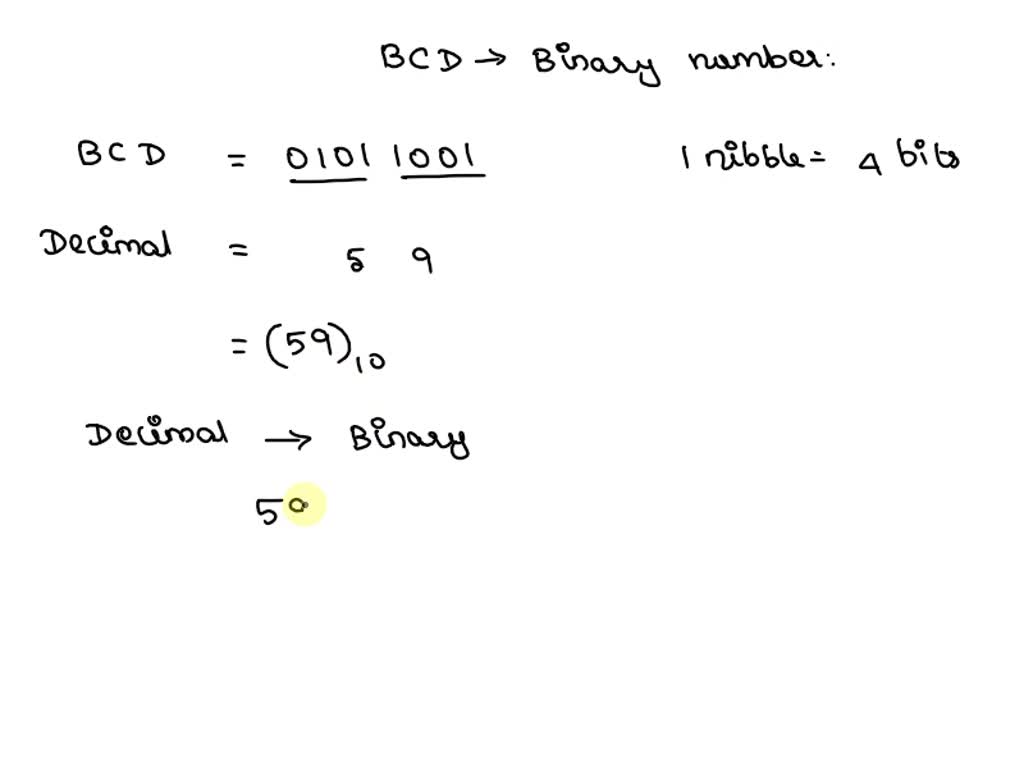 BCD → Binary number:
BCD = 0101 1001 1 nibble = 4 bits
Decimal = 5 9
= (59)10
Decimal → Binary
59